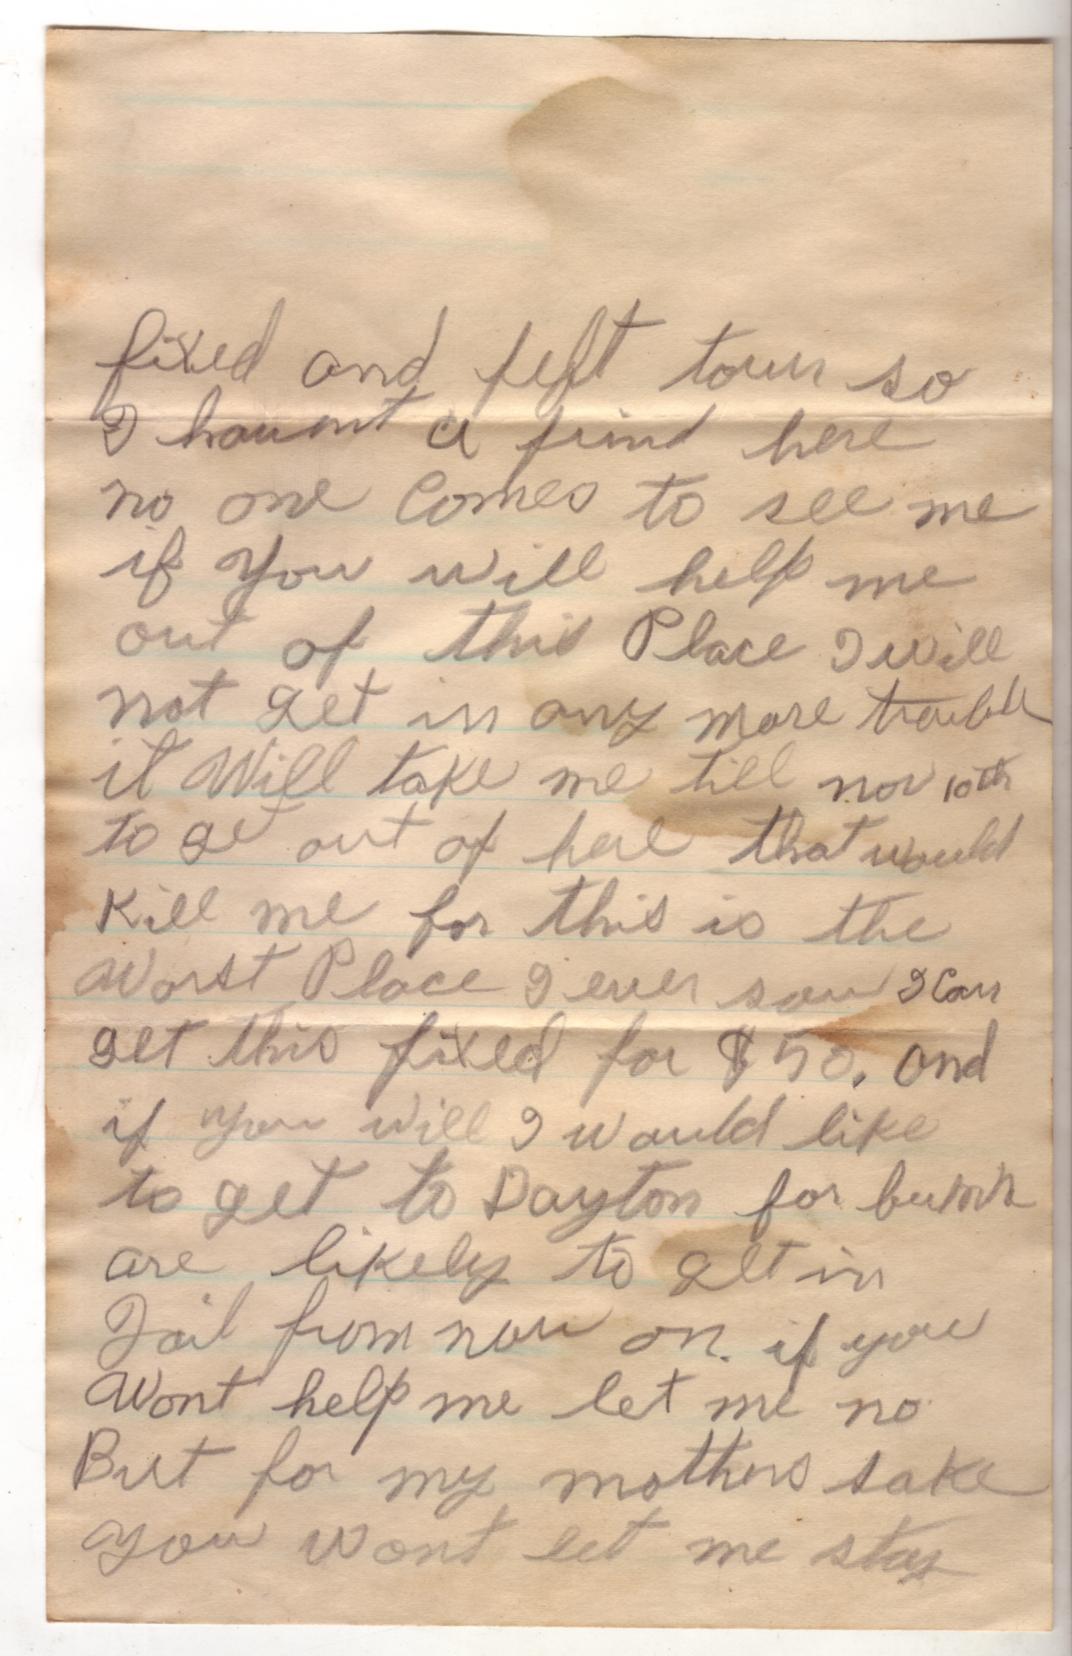 fixed and left town so
I havent a frind here
no one Comes to see me
if you will help me
out of this Place I will
not get in any more trouble
it Will take me till nov 10th
to get out of here that would
Kill me for this is the
Worst Place I ever saw I Can
get this fixed for $50. and
if you will I would like
to get to Dayton for bums
are likely to get in
Jail from now on. if you
Wont help me let me no
But for my mothers sake
you Wont let me stay